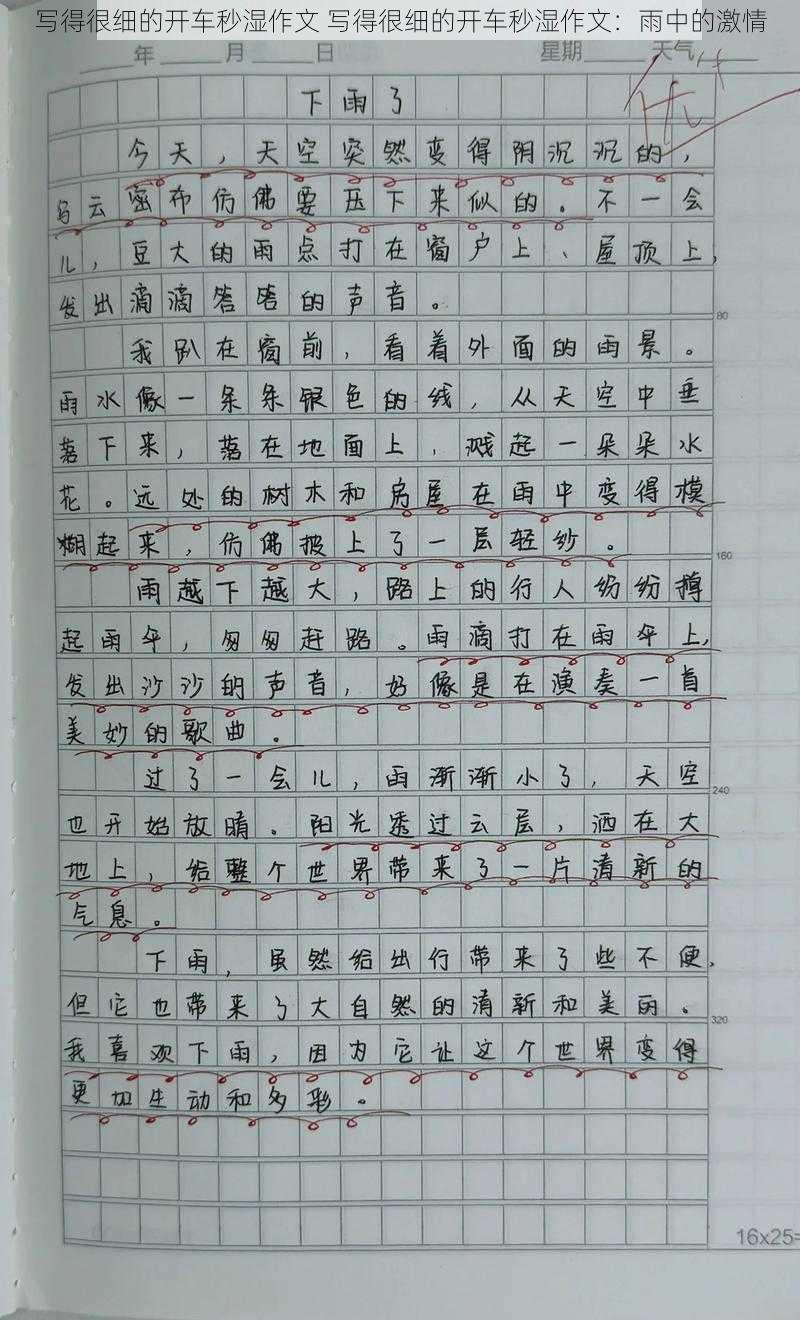 写得很细的开车秒湿作文 写得很细的开车秒湿作文：雨中的激情
年 月 日 星期 天气
优
下雨了
今天，天空突然变得阴沉沉的，
乌云密布仿佛要压下来似的。不一会
儿，豆大的雨点打在窗户上、屋顶上，
发出滴滴答答的声音。
80
我趴在窗前，看着外面的雨景。
雨水像一条条银色的线，从天空中垂
落下来，落在地面上，溅起一朵朵水
花。远处的树木和房屋在雨中变得模
糊起来，仿佛披上了一层轻纱。
160
雨越下越大，路上的行人纷纷撑
起雨伞，匆匆赶路。雨滴打在雨伞上，
发出沙沙的声音，好像是在演奏一首
美妙的歌曲。
过了一会儿，雨渐渐小了，天空
240
也开始放晴。阳光透过云层，洒在大
地上，给整个世界带来了一片清新的
气息。
下雨，虽然给出行带来了些不便，
但它也带来了大自然的清新和美丽。
320
我喜欢下雨，因为它让这个世界变得
更加生动和多彩。
16x25=